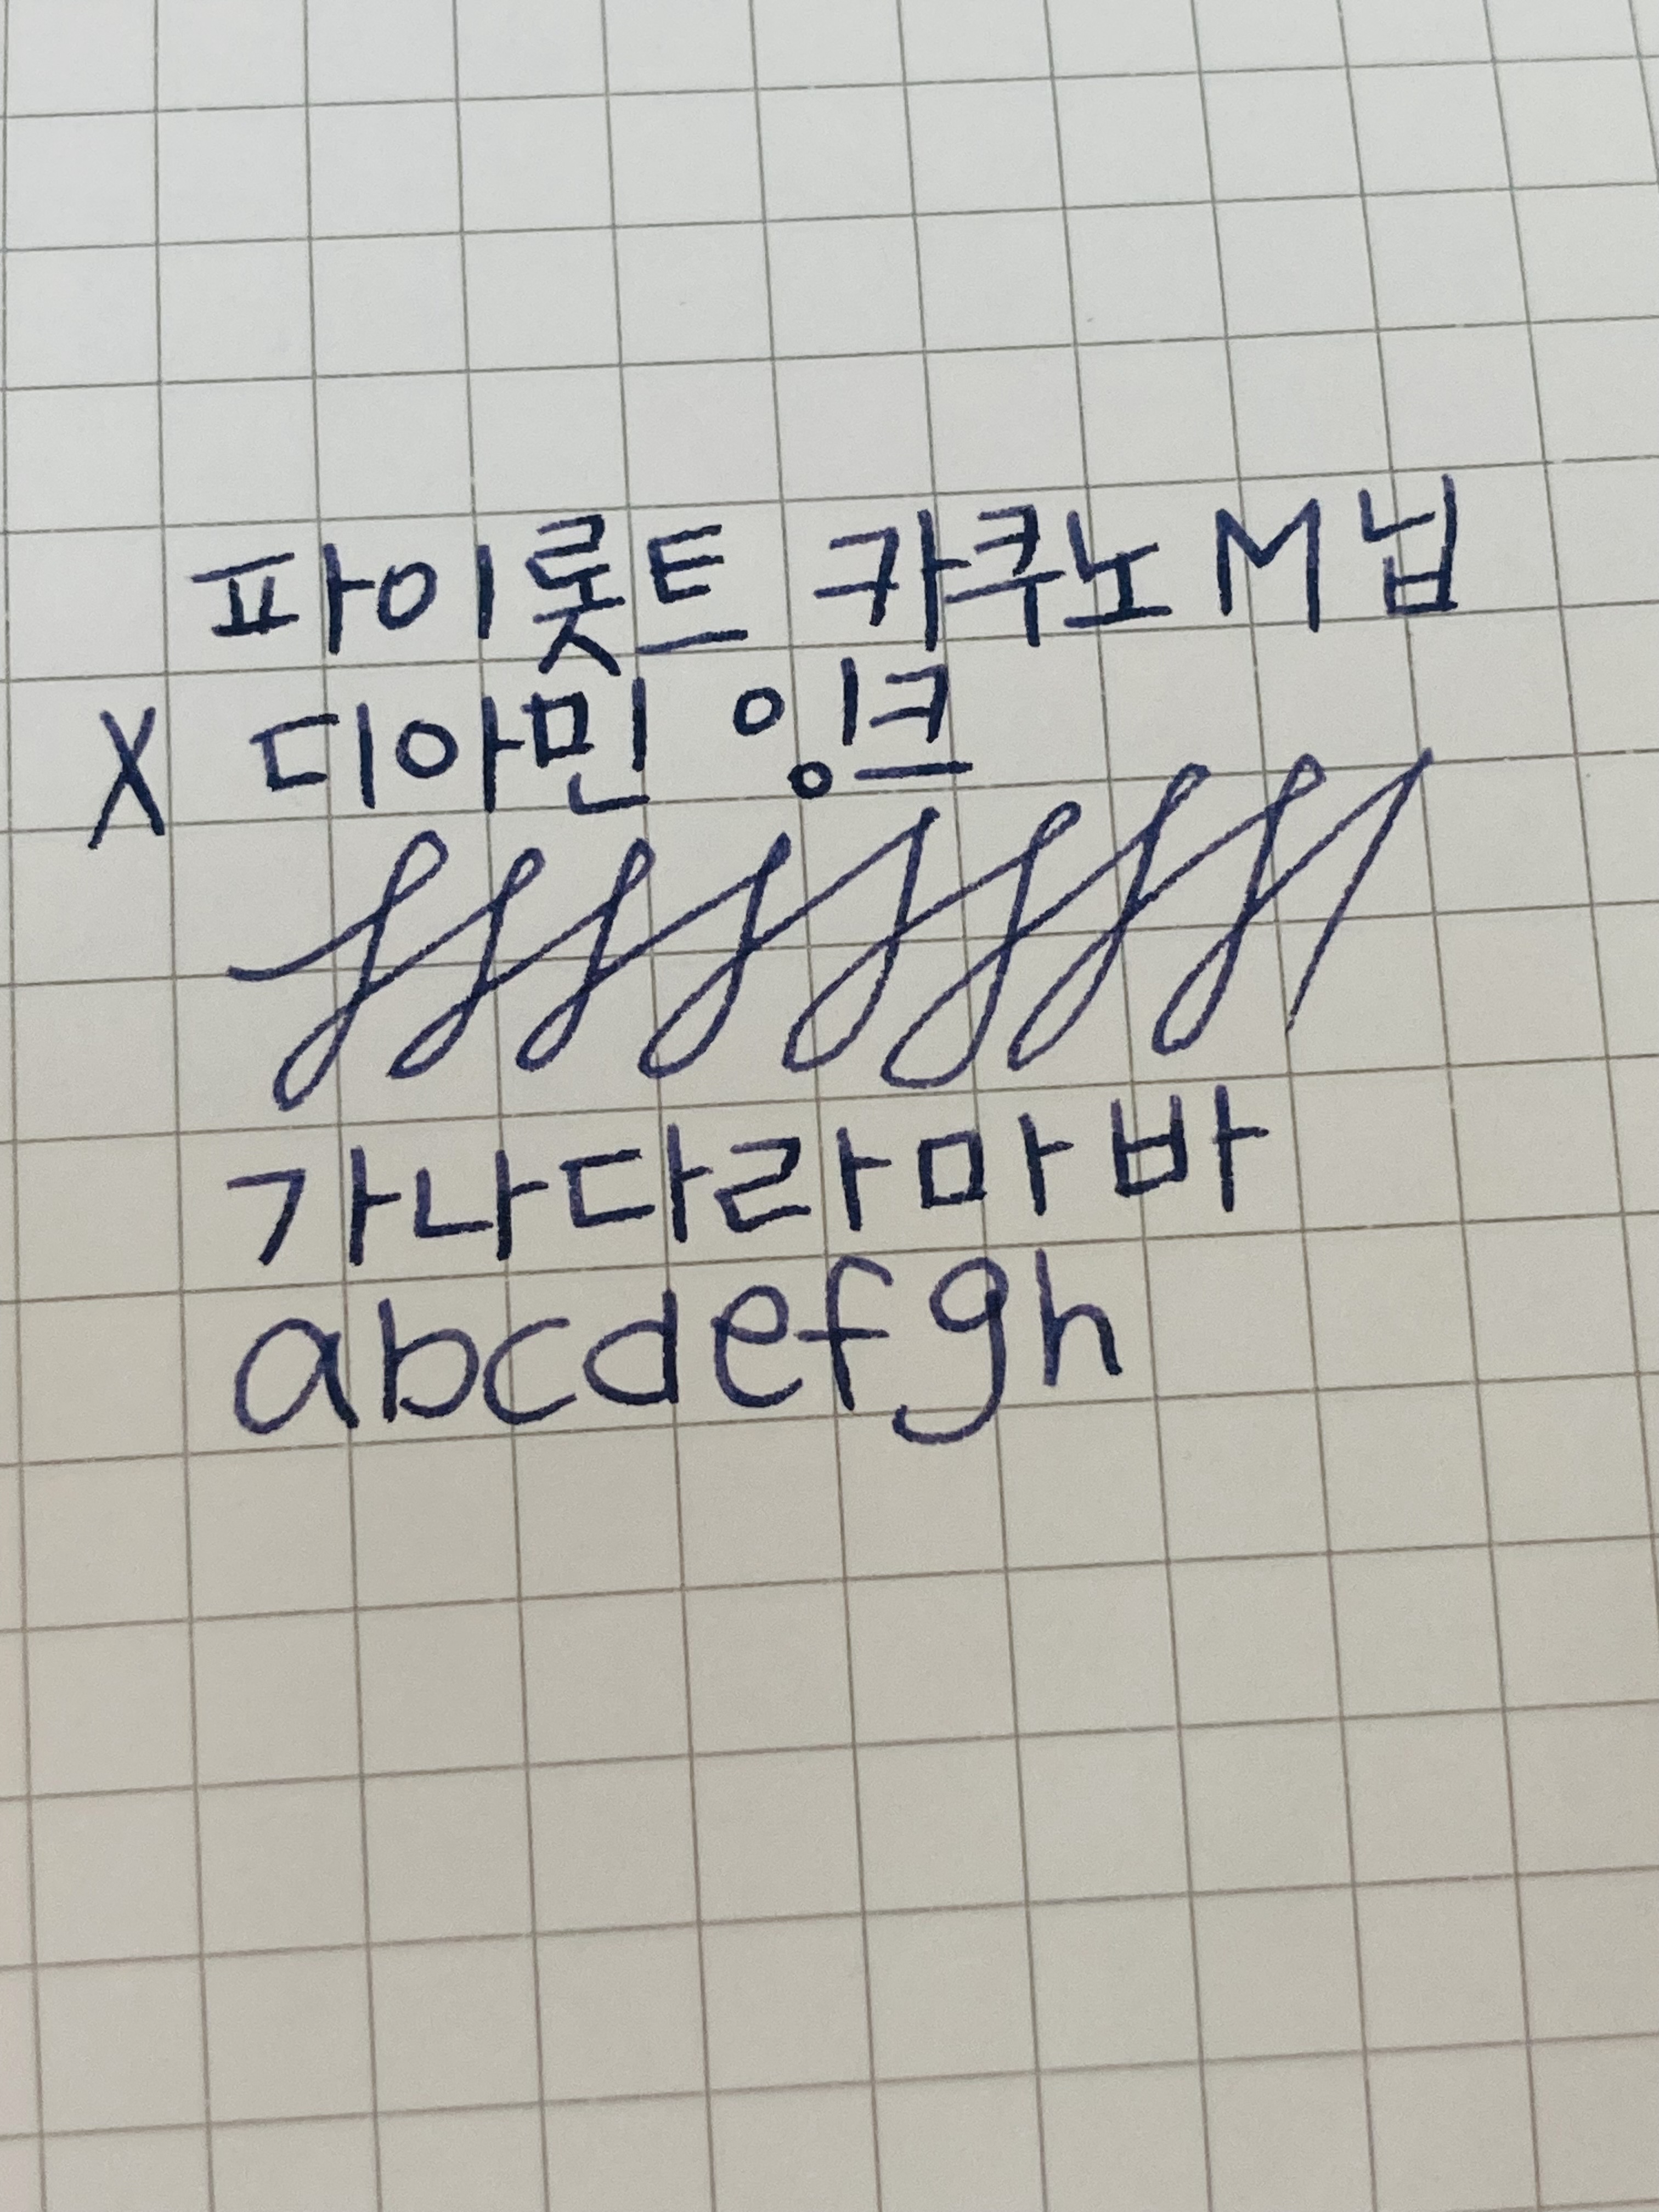 파이롯트 카쿠노 M닙
X 디아민 잉크
가나다라마바
abcdefgh